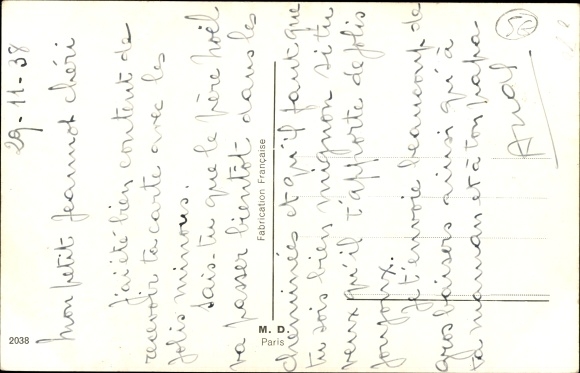 29-11-38
Mon petit Jeannot chéri
J'ai été bien content de
recevoir ta carte avec les
jolis minous.
Sais-tu que le père Noël
va passer bientôt dans les
cheminées et qu'il faut que
tu sois bien mignon si tu
veux qu'il t'apporte de jolis
joujoux.
Je t'envoie beaucoup de
gros baisers ainsi qu'à
ta maman et à ton papa.
Fabrication Française
M. D.
Paris
2038